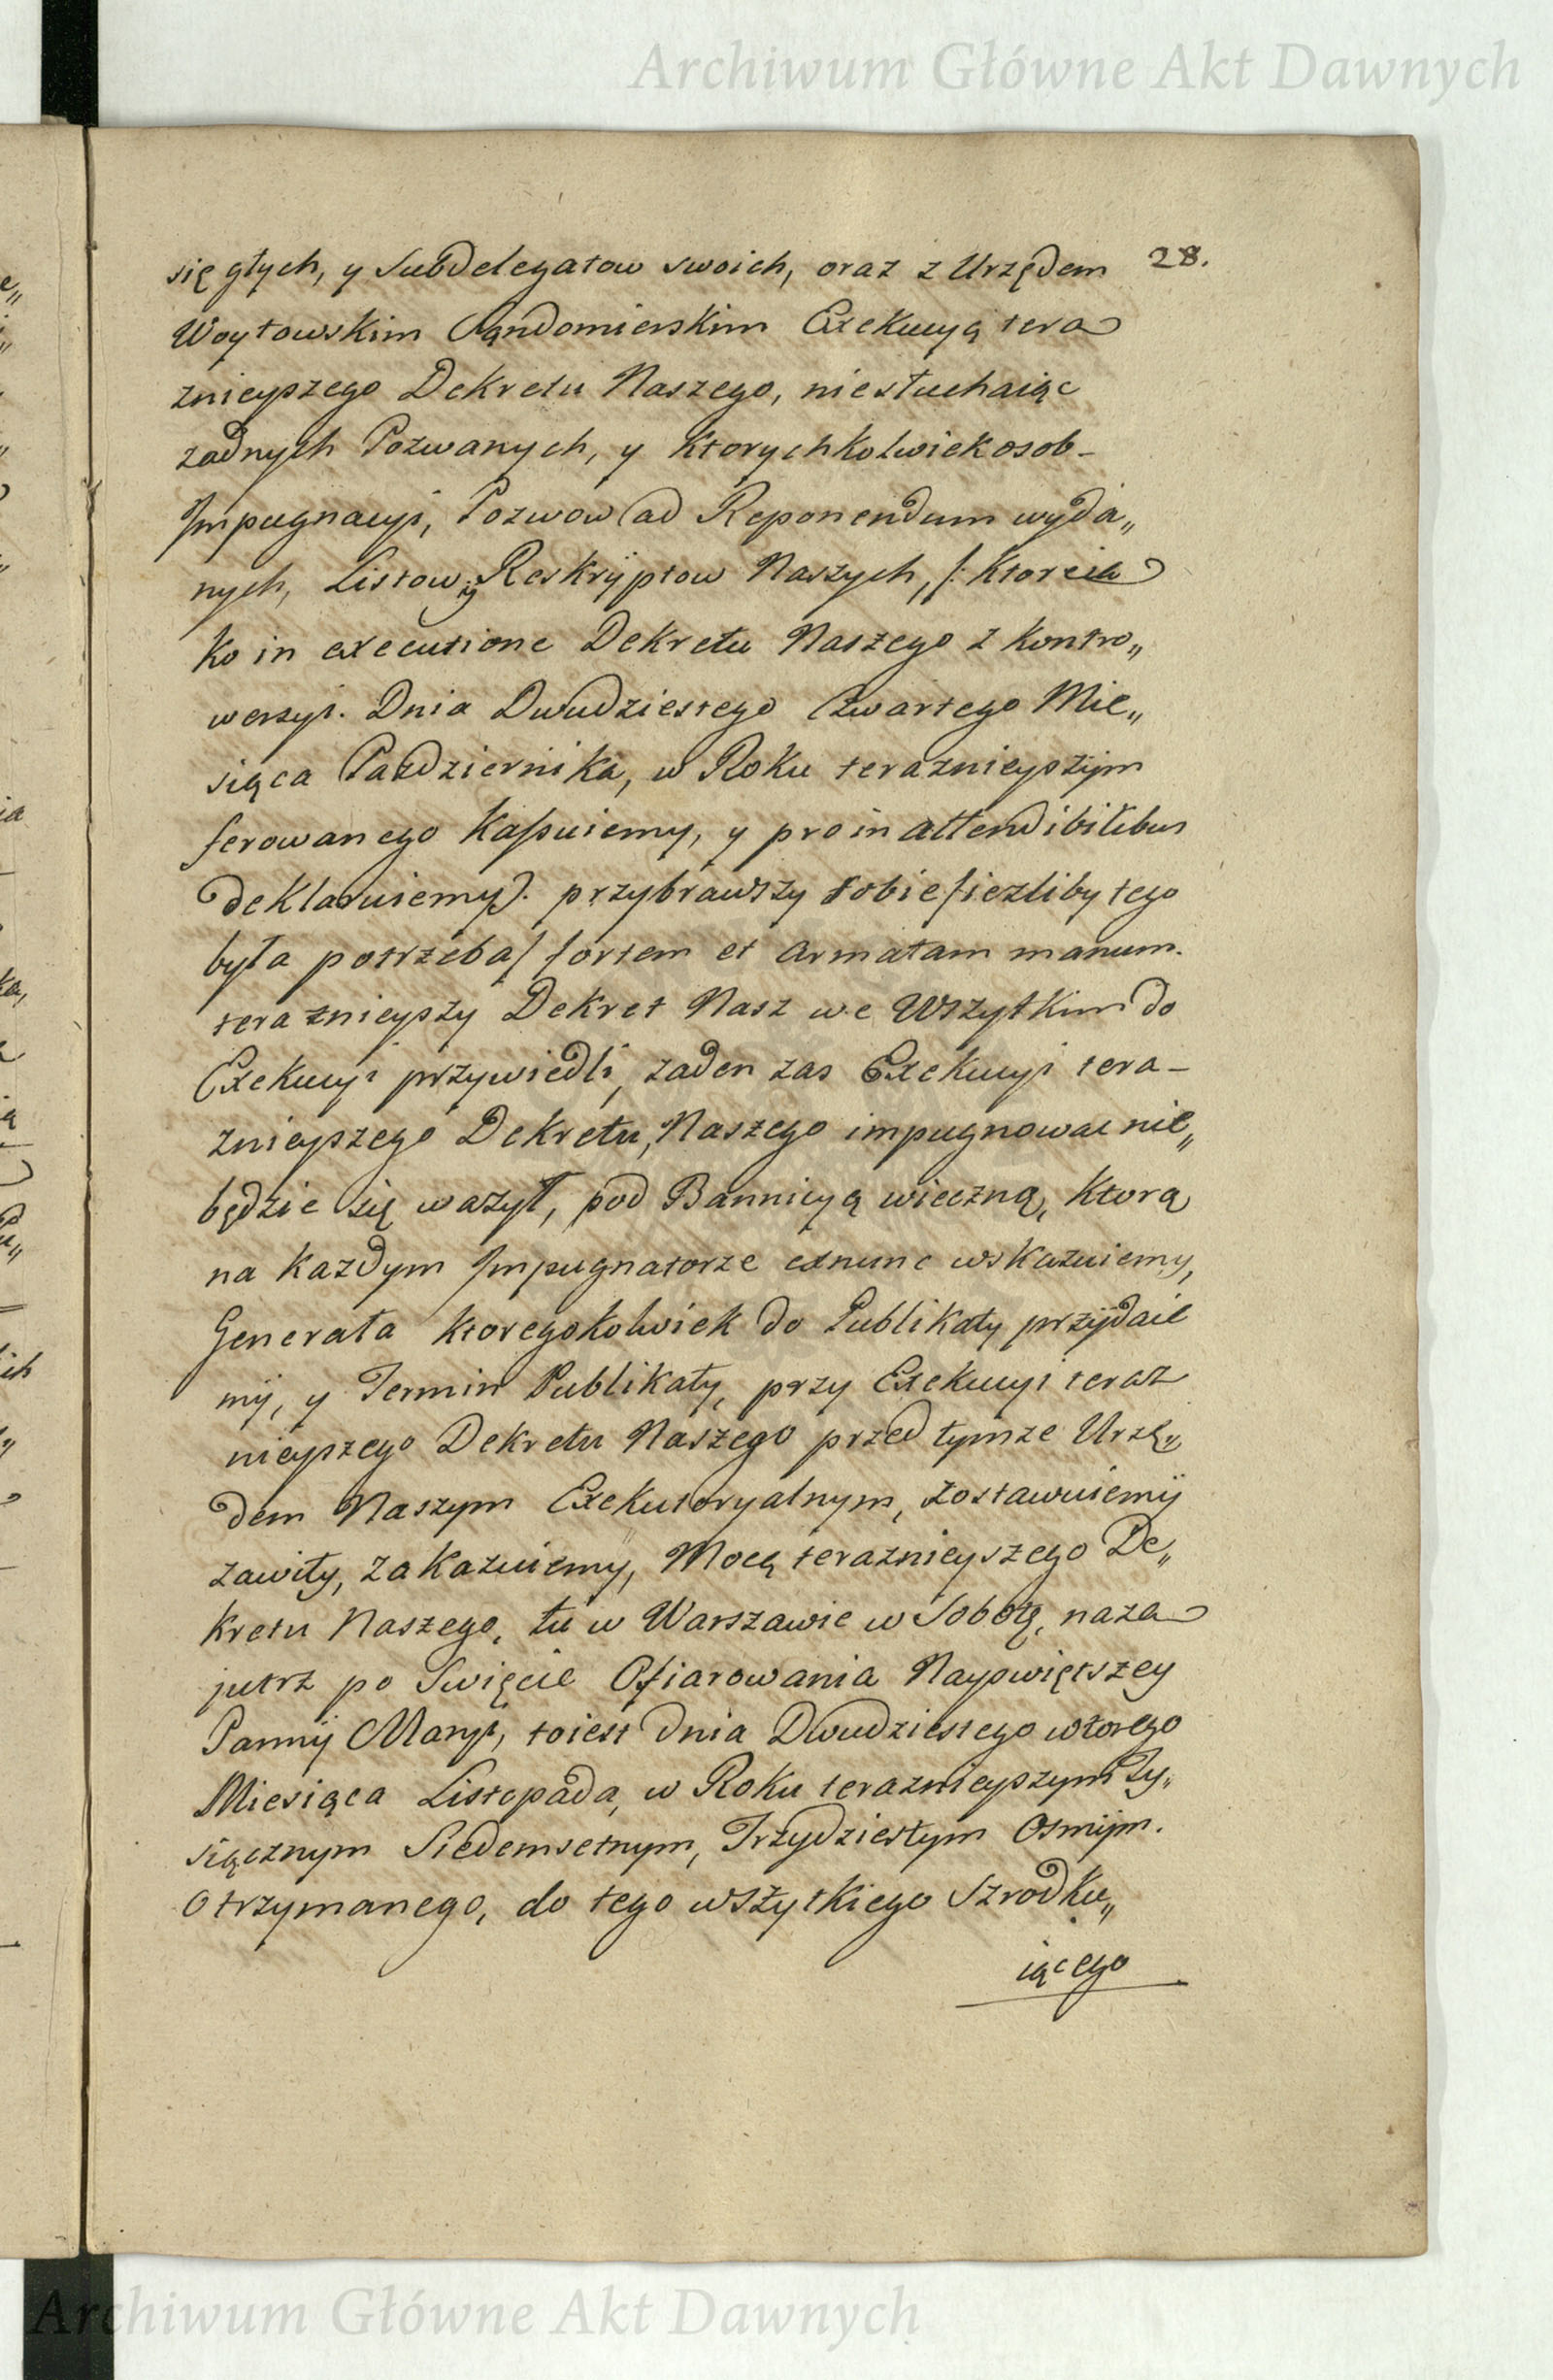 Archiwum Główne Akt Dawnych
się głych, y Subdelegatow swoich, oraz z Urzędem 28.
Woytowskim Sandomierskim Exekucyą tera
znieyszego Dekretu Naszego, niesłuchaiąc
zadnych Pozwanych, y Ktorychkolwiek osob-
Impugnacyi, Pozwow ad Reponendum wyda„
nych, Listow y Reskryptow Naszych, /: Ktore
ko in executione Dekretu Naszego z Kontro„
wersyi. Dnia Dwudziestego Czwartego Mie„
siąca Pazdziernika, w Roku teraznieyszym
ferowanego Kassuiemy, y pro inattendibilibus
deklaruiemy). przybrawszy sobie /iezliby tego
była potrzeba/ fortem et armatam manum.
teraznieyszy Dekret Nasz we Wszytkim do
Exekucyi przywiedli, zaden zas Exekucyi tera-
znieyszego Dekretu, Naszego impugnowac nie„
będzie się wazył, pod Bannicyą wieczną, Ktorą
na Kazdym Impugnatorze exnunc wskazuiemy,
Generała Ktoregokolwiek do Publikaty przydaie
my, y Termin Publikaty, przy Exekucyi teraz
nieyszego Dekretu Naszego przed tymze Urzę„
dem Naszym Exekutoryalnym, zostawuiemy
zawity, zakazuiemy, Mocą teraznieyszego De„
kretu Naszego, tu w Warszawie w Sobotę, naza
jutrz po Swięcie Ofiarowania Nayswiętszey
Panny Maryi, toiest dnia Dwudziestego wtorego
Miesiąca Listopada, w Roku teraznieyszym Ty„
siącznym Siedemsetnym, Trzydziestym Osmym.
otrzymanego, do tego wszytkiego Szrodku„
iącego
Archiwum Główne Akt Dawnych